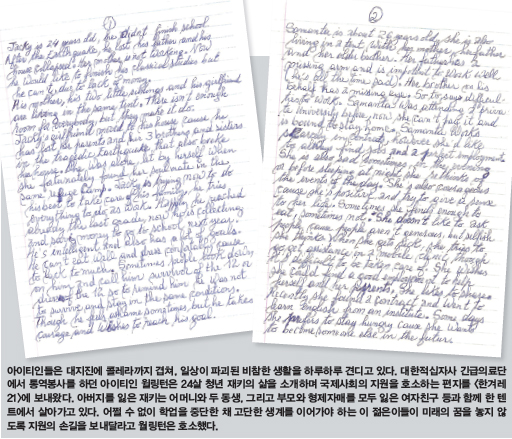 ①
Jacky is 24 years old, he didn't finish school
After the Earthquake, he lost his father and his
house collapsed. Her mother is not working. Now
he would like to finish his classical studies but
he can't due to lack of money.
His mother, his two little siblings and his girlfriend
are living in the same tent. There isn't enough
room for everybody, but they make it do.
Jacky's girlfriend moved to his house cause he
lost her parents and her 3 brothers and sisters
in the tragedic Earthquake that also broke
his house. She lives alone, but by herself when
she fortunately found her soulmate in the
same refuge camp. Jacky is trying now to do
his best to take care of
everything to do as work. Happily, he reached
already this last grade, now he is collecting
and saving money to go to school next year.
He's intelligent and also has a lot of goals.
He can't eat well and dress properly cause
to lack to much. Sometimes people look down
on him and call him survivor of the 12th
disaster
to survive and stay in the same conditions.
Though he feels shame sometimes but he takes
courage and wishes to reach his goal.
②
Samantha is about 26 years old, she is also
living in a tent, with her mother, her father
and her older brother. Her father has a
missing arm and is important to work well
(he's all the time sad). Her brother on his
behalf has a missing leg. So this is difficult
his to work. Samantha was attending a private
University before, now she can't pay it and
is bound to stay home. Samantha works
however she'd like
to always find jobs and a great employment
She is also sad sometimes,
or before sleeping at night she rethinks of
the events to this day. She's also courageous
cause she is positive and try to give a sense
to her life. Sometimes she finds enough to
eat, sometimes not. She doesn't like to ask
people cause people aren't generous but selfish
she thinks. When she gets sick, she tries to
get a guidance in a mobile clinic though
She could be taken care of. She wishes
she could find a good employment to help
herself and her parents. She likes languages
Recently she found a contract and went to
learn English from an institute. Some days
she prefers to stay hungry cause she wants
to become someone else in the future.
아이티인들은 대지진에 콜레라까지 겹쳐, 일상이 파괴된 비참한 생활을 하루하루 견디고 있다. 대한적십자사 긴급의료단
에서 통역봉사를 하던 아이티인 월링턴은 24살 청년 재키의 삶을 소개하며 국제사회의 지원을 호소하는 편지를 〈한겨레
21〉에 보내왔다. 아버지를 잃은 재키는 어머니와 두 동생, 그리고 부모와 형제자매를 모두 잃은 여자친구 등과 함께 한 텐
트에서 살아가고 있다. 어쩔 수 없이 학업을 중단한 채 고단한 생계를 이어가야 하는 이 젊은이들이 미래의 꿈을 놓지 않
도록 지원의 손길을 보내달라고 월링턴은 호소했다.